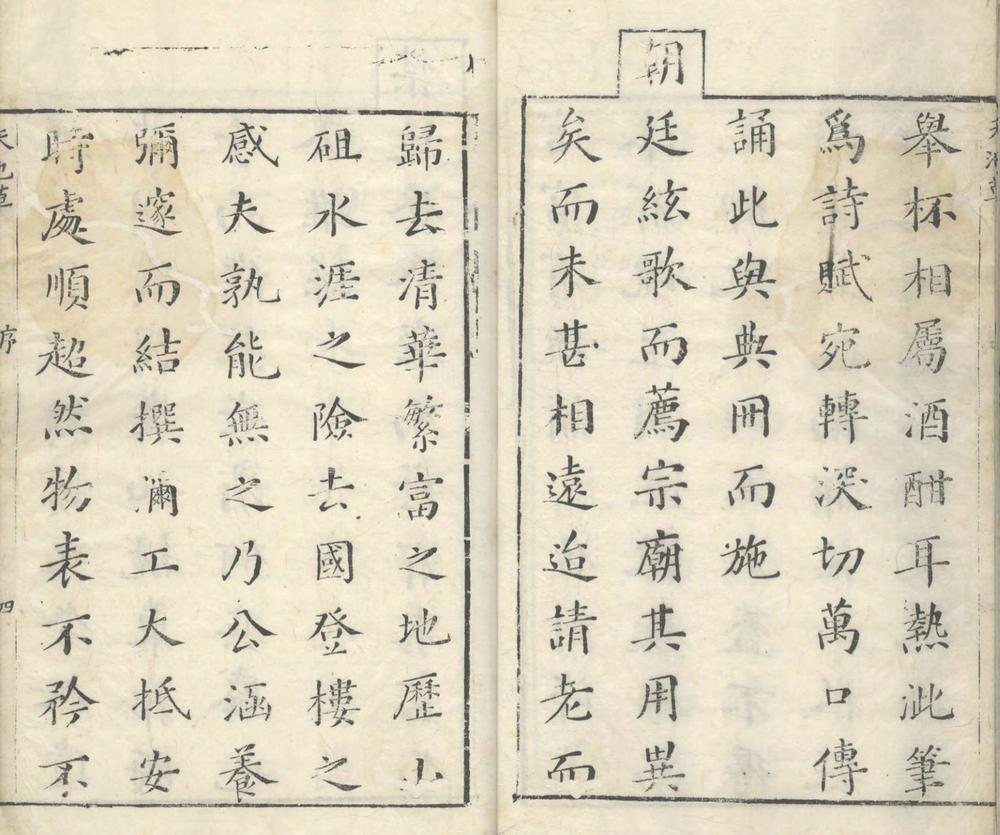 舉杯相屬酒酣耳熱泚筆
爲詩賦宛轉深切萬口傳
誦此與典冊而施
朝
廷絃歌而薦宗廟其用異
矣而未甚相遠迨請老而
歸去清華繁富之地歷山
砠水涯之險去國登樓之
感夫孰能無之乃公涵養
彌邃而結撰彌工大抵安
時處順超然物表不矜不
序
四